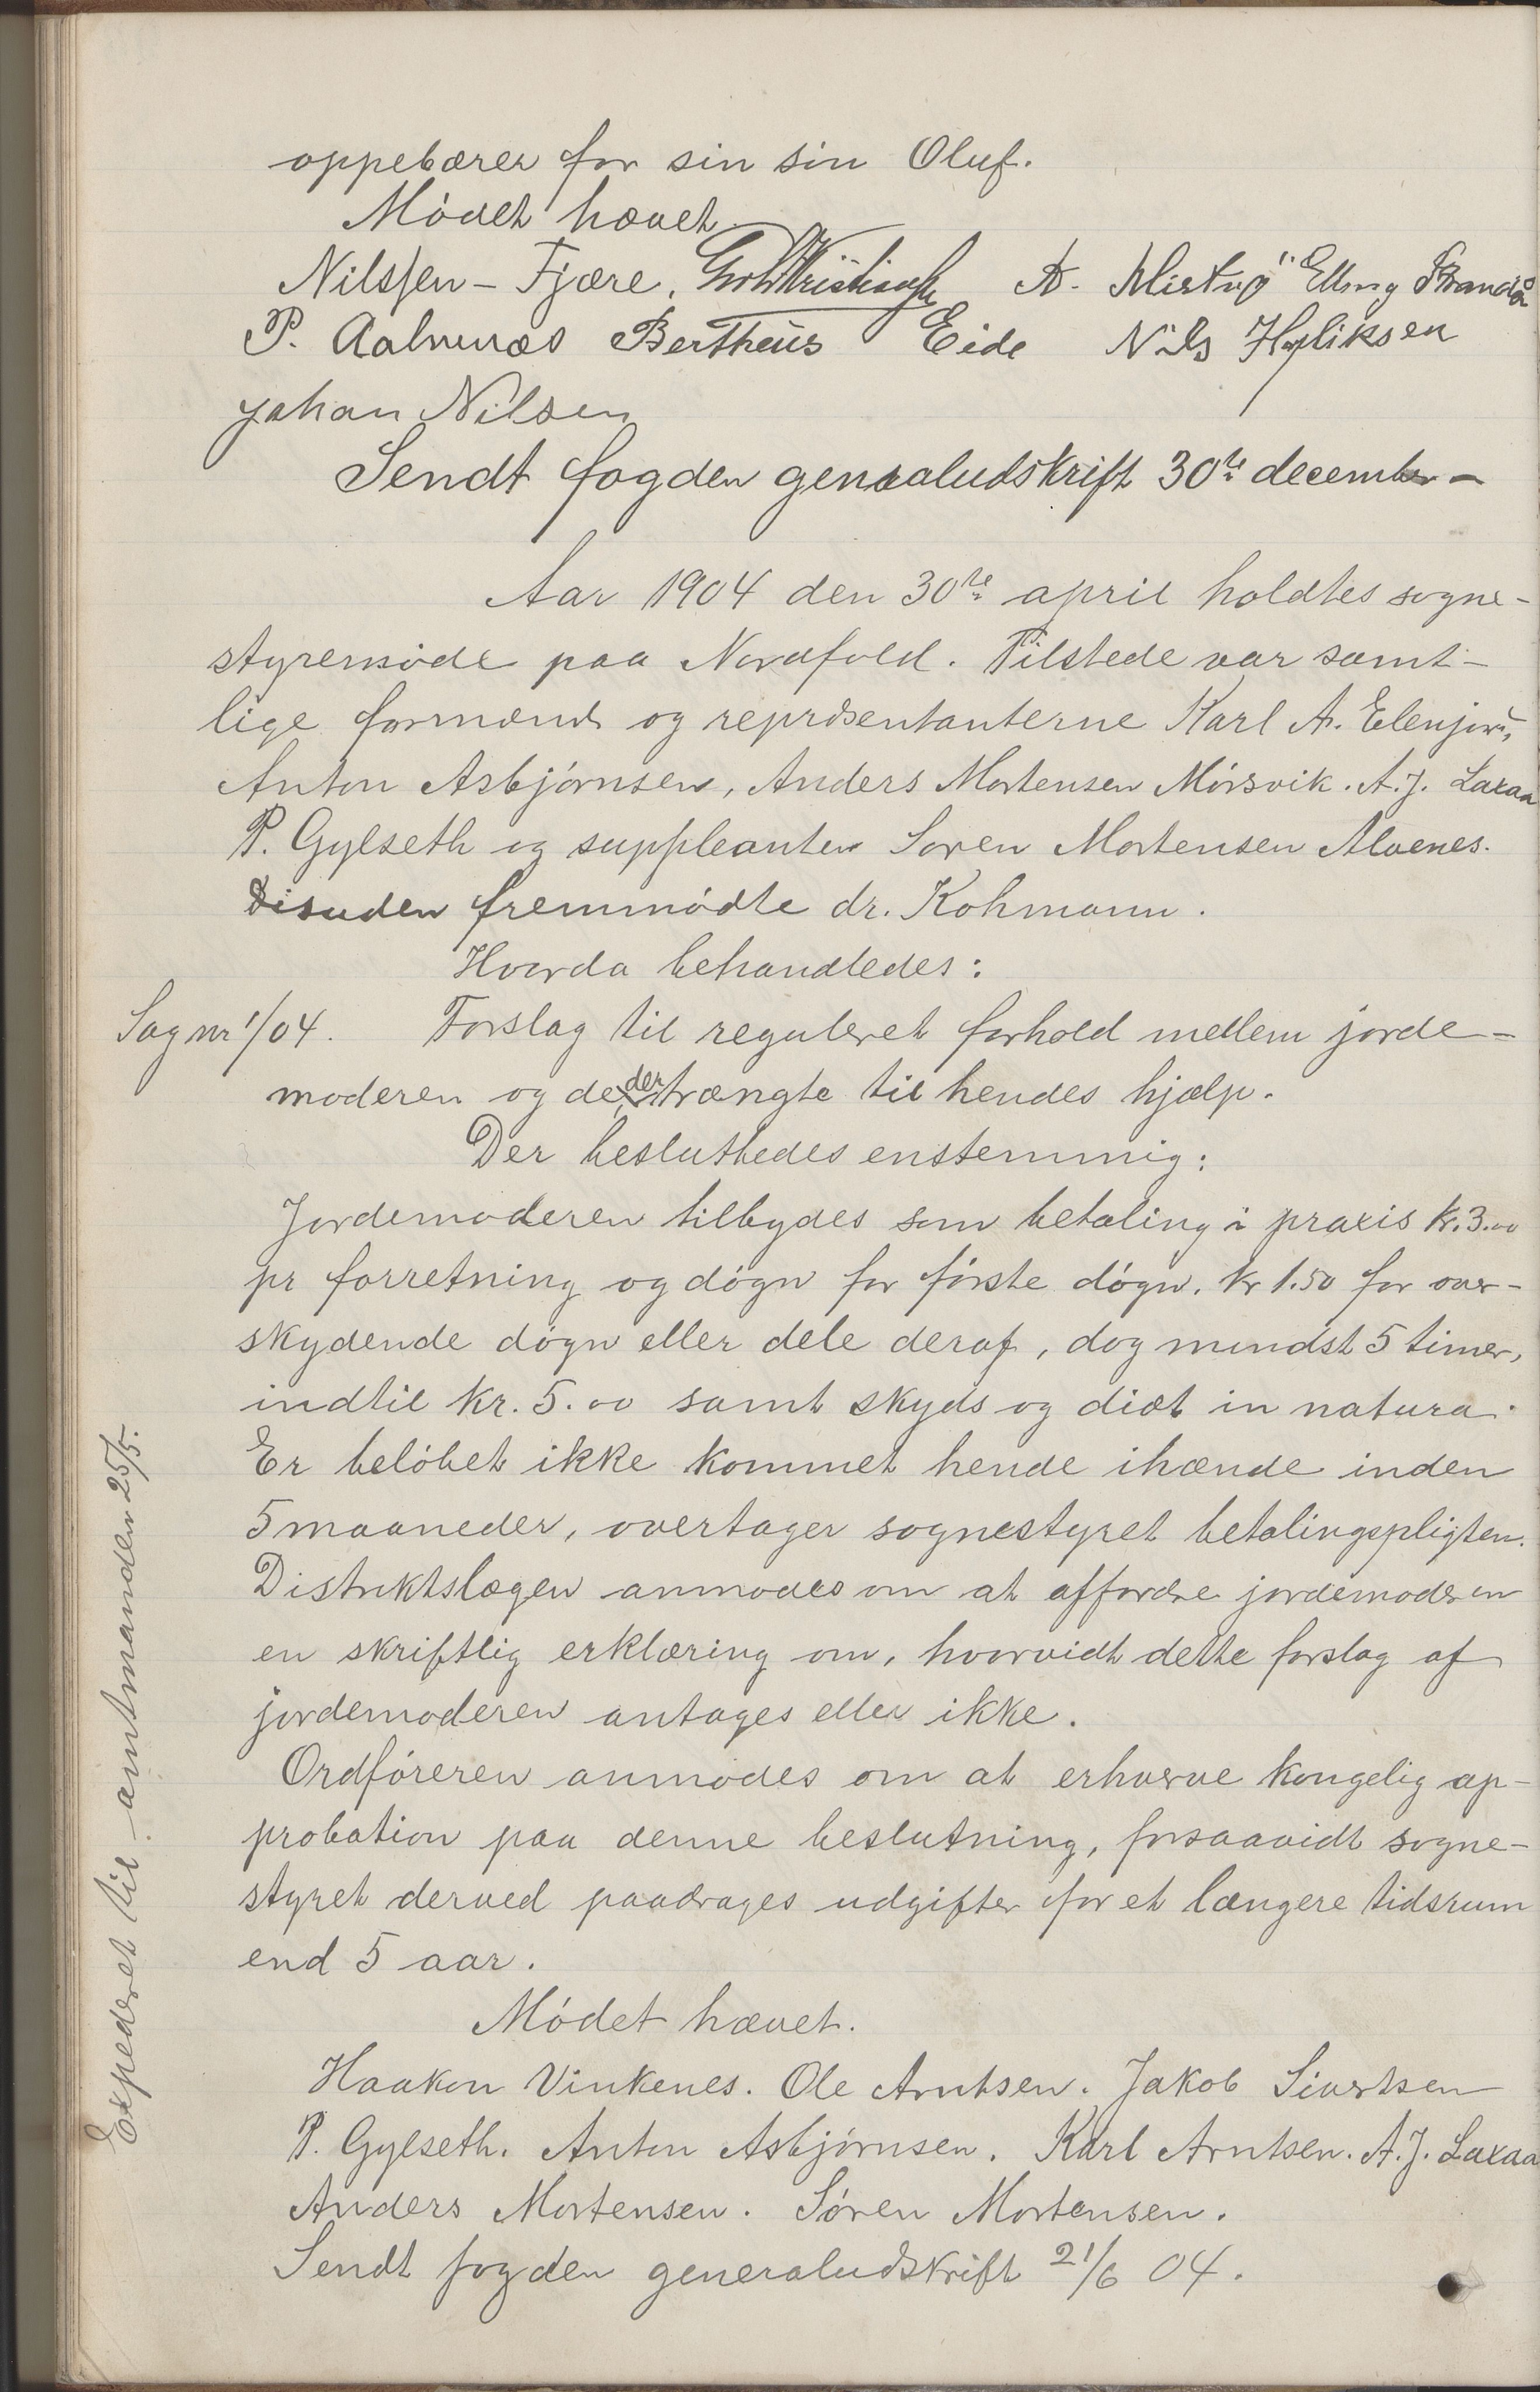 oppebærer for sin sin Oluf.
Mødet hævet
Nilssen - Fjære. A. Mistup Elling Strandå
P. Aalmenæs Bertheus Eide Nils Hpliksen
Johan Nilsen
Sendt fogden genaaludskrift 30te december -
Aar 1904 den 30te april holdtes sogne-
styremøde paa Nordfold. Tilstede var samt-
lige formænd og repræsentanterne Karl A. Elenjord,
Anton Asbjørnsen, Anders Mortensen Mørsvik. A.J. Laxaa
P. Gylseth og suppleanten Soren Mortensen Alvenes.
Disuden fremmødte dr. Kohmann.
Hvorda behandledes:
Sag nr 1/04. Forslag til reguleret forhold mellem jorde-
moderen og de der trængte til hendes hjælp.
Der besluttedes enstemmig:
Jordemoderen tilbydes som betaling i praxis kr. 3.00
pr forretning og døgn for første døgn. kr 1.50 for over-
skydende døgn eller dele deraf, dog mindst 5 timer,
indtil kr. 5.00 samt skyds og diæt in natura.
Er beløbet ikke kommet hende ihænde inden
5 maaneder, overtager sognestyret betalingspligten.
Distriktslægen anmodes om at affordre jordemoderen
en skriftlig erklæring om, hvorvidt dette forslag af
jordemoderen antages eller ikke.
Ordføreren anmodes om at erhverve kongelig ap-
probation paa denne beslutning, forsaavidt sogne-
styret derved paadrages udgifter for et længere tidsrum
end 5 aar.
Mødet hævet.
Haakon Vinkenes. Ole Arntsen. Jakob Sivertsen
P. Gylseth. Anton Asbjørnsen. Karl Arntsen. A.J. Laxaa
Anders Mortensen. Søren Mortensen.
Sendt fogden generaludskrift 21/6 04.
Expederet til amtmanden 25/5.